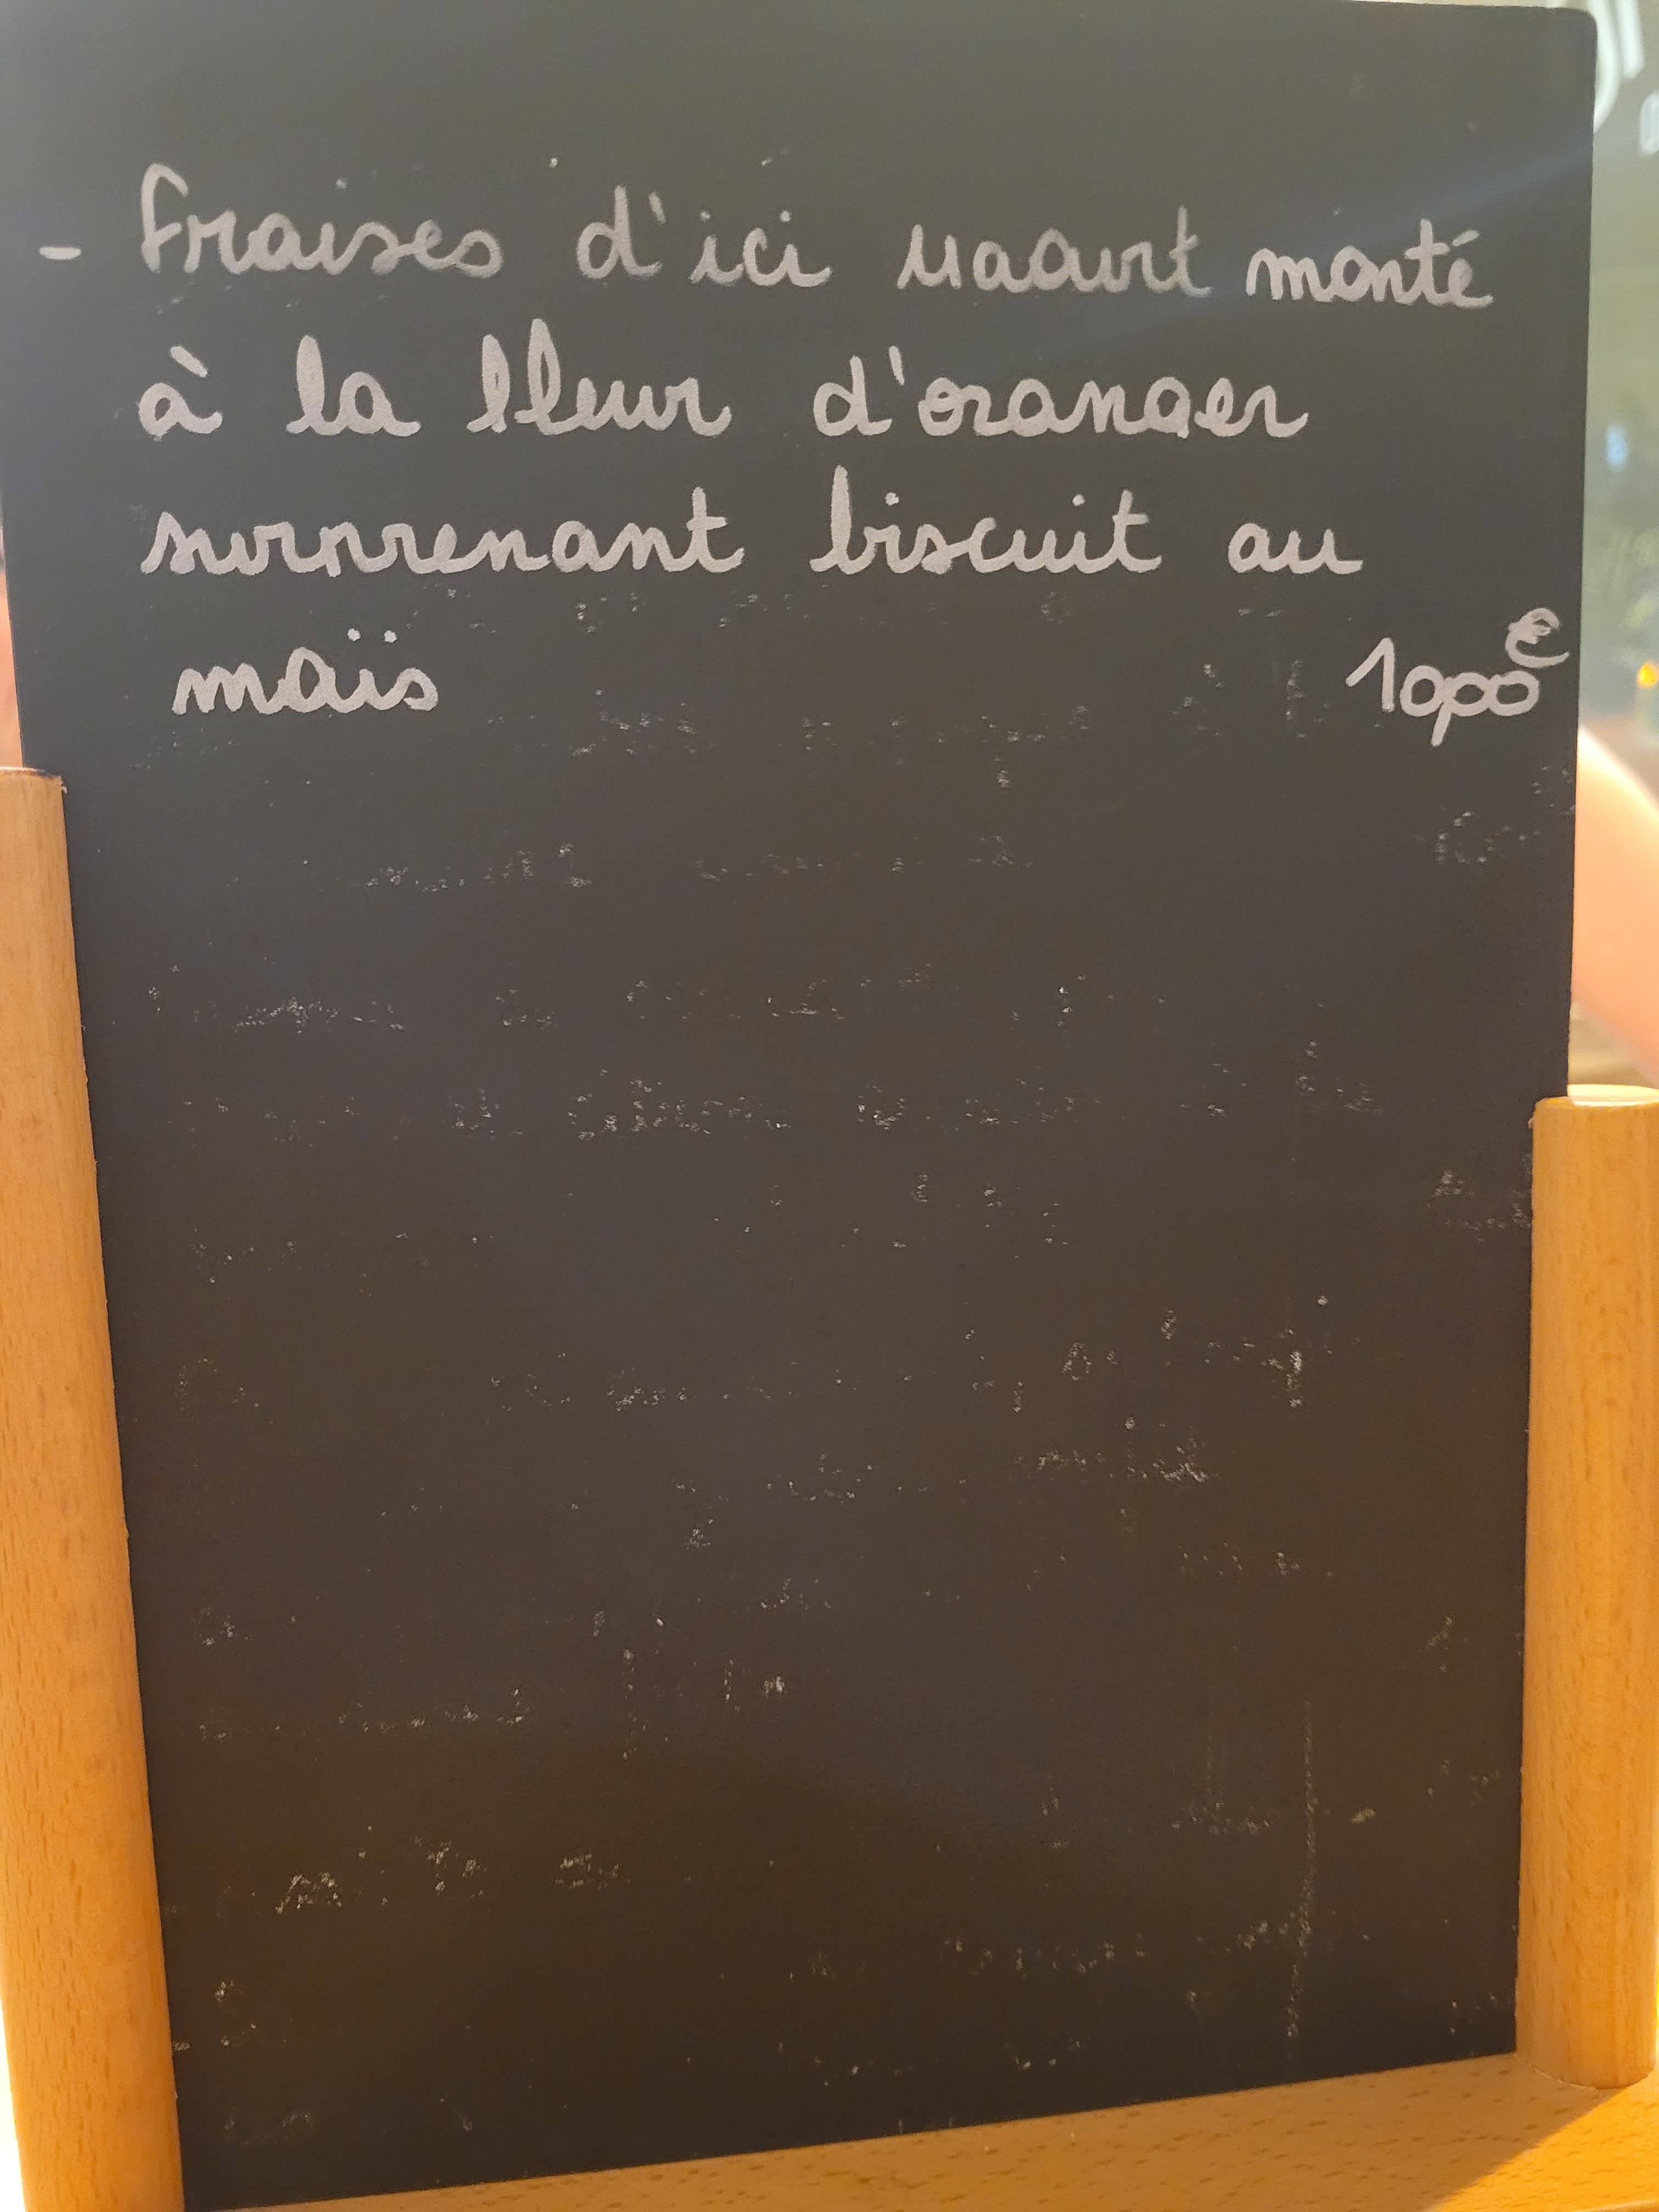 - Fraises d'ici yaourt monté
à la fleur d'oranger
surprenant biscuit au
maïs 10,00€